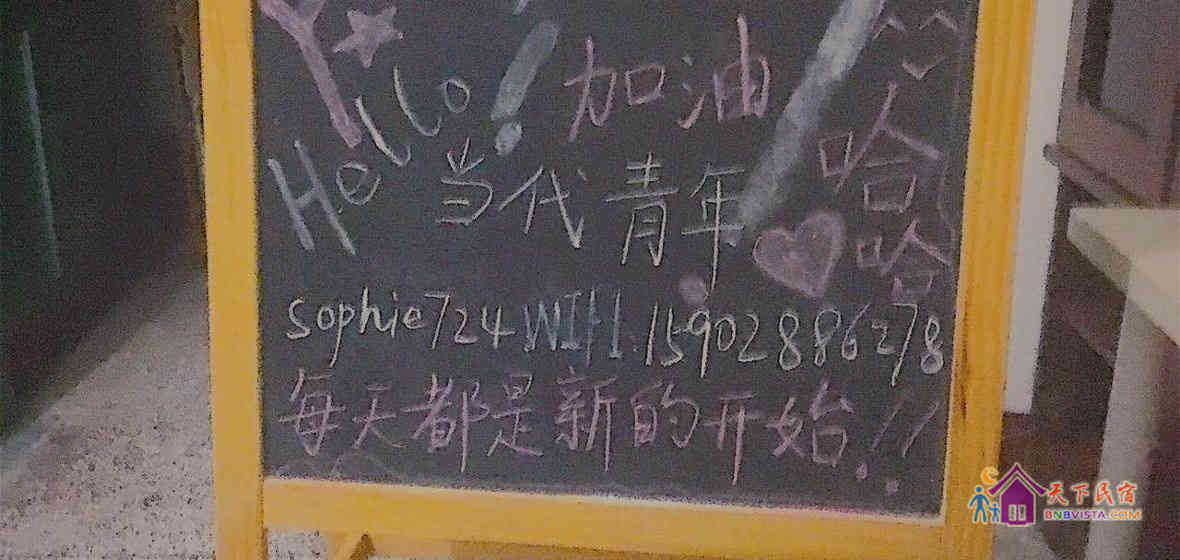 Hello! 加油
当代青年 哈哈
sophie724 WIFI:15902886278
每天都是新的开始!!
天下民宿
BNBVISTA.COM